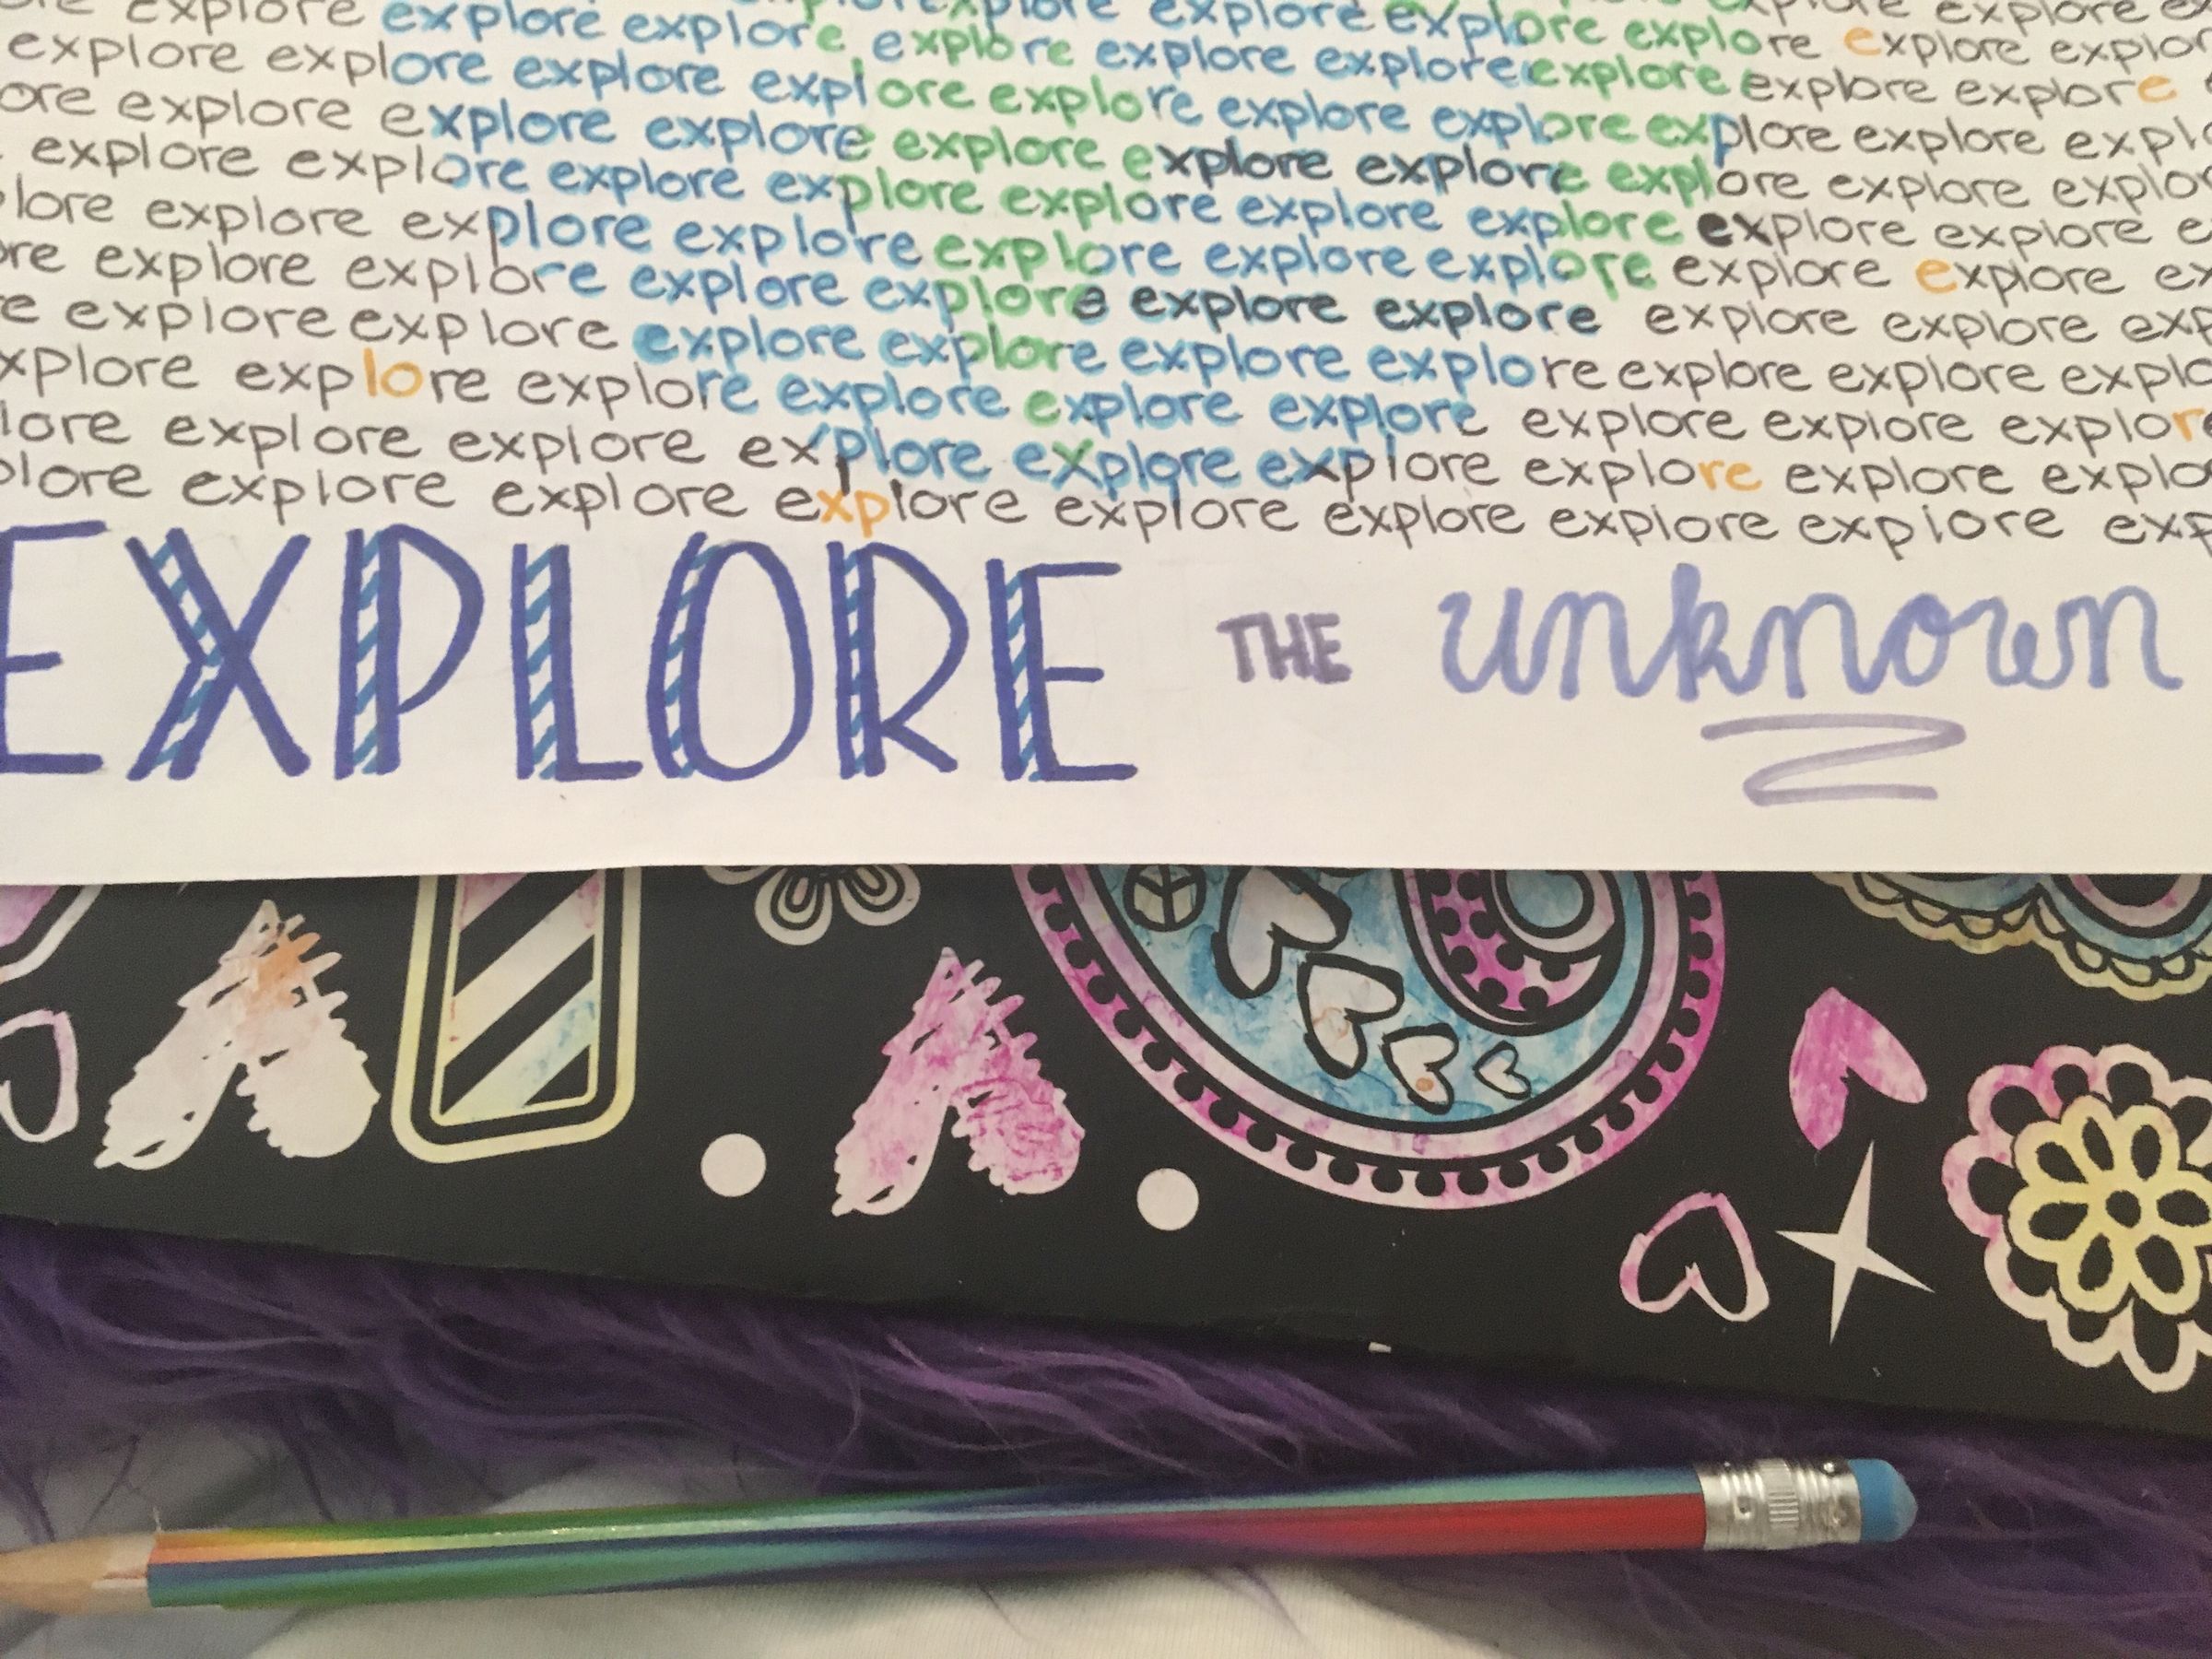 explore explore explore explore explore explor
re explore explore explore explore explore explore explore explore explore
explore explore explore explore explore explore explore explore explore expl
ore explore explore explore explore explore explore explore explore explo
explore explore explore explore explore explore explore explore explore e
lore explore explore explore explore explore explore explore explore ex
re explore explore explore explore explore explore explore explore exp
e explore explore explore explore explore explore explore explore explo
xplore explore explore explore explore explore explore explore explore
lore explore explore explore explore explore explore explore explo
plore explore explore explore explore explore explore explore exp
EXPLORE THE unknown